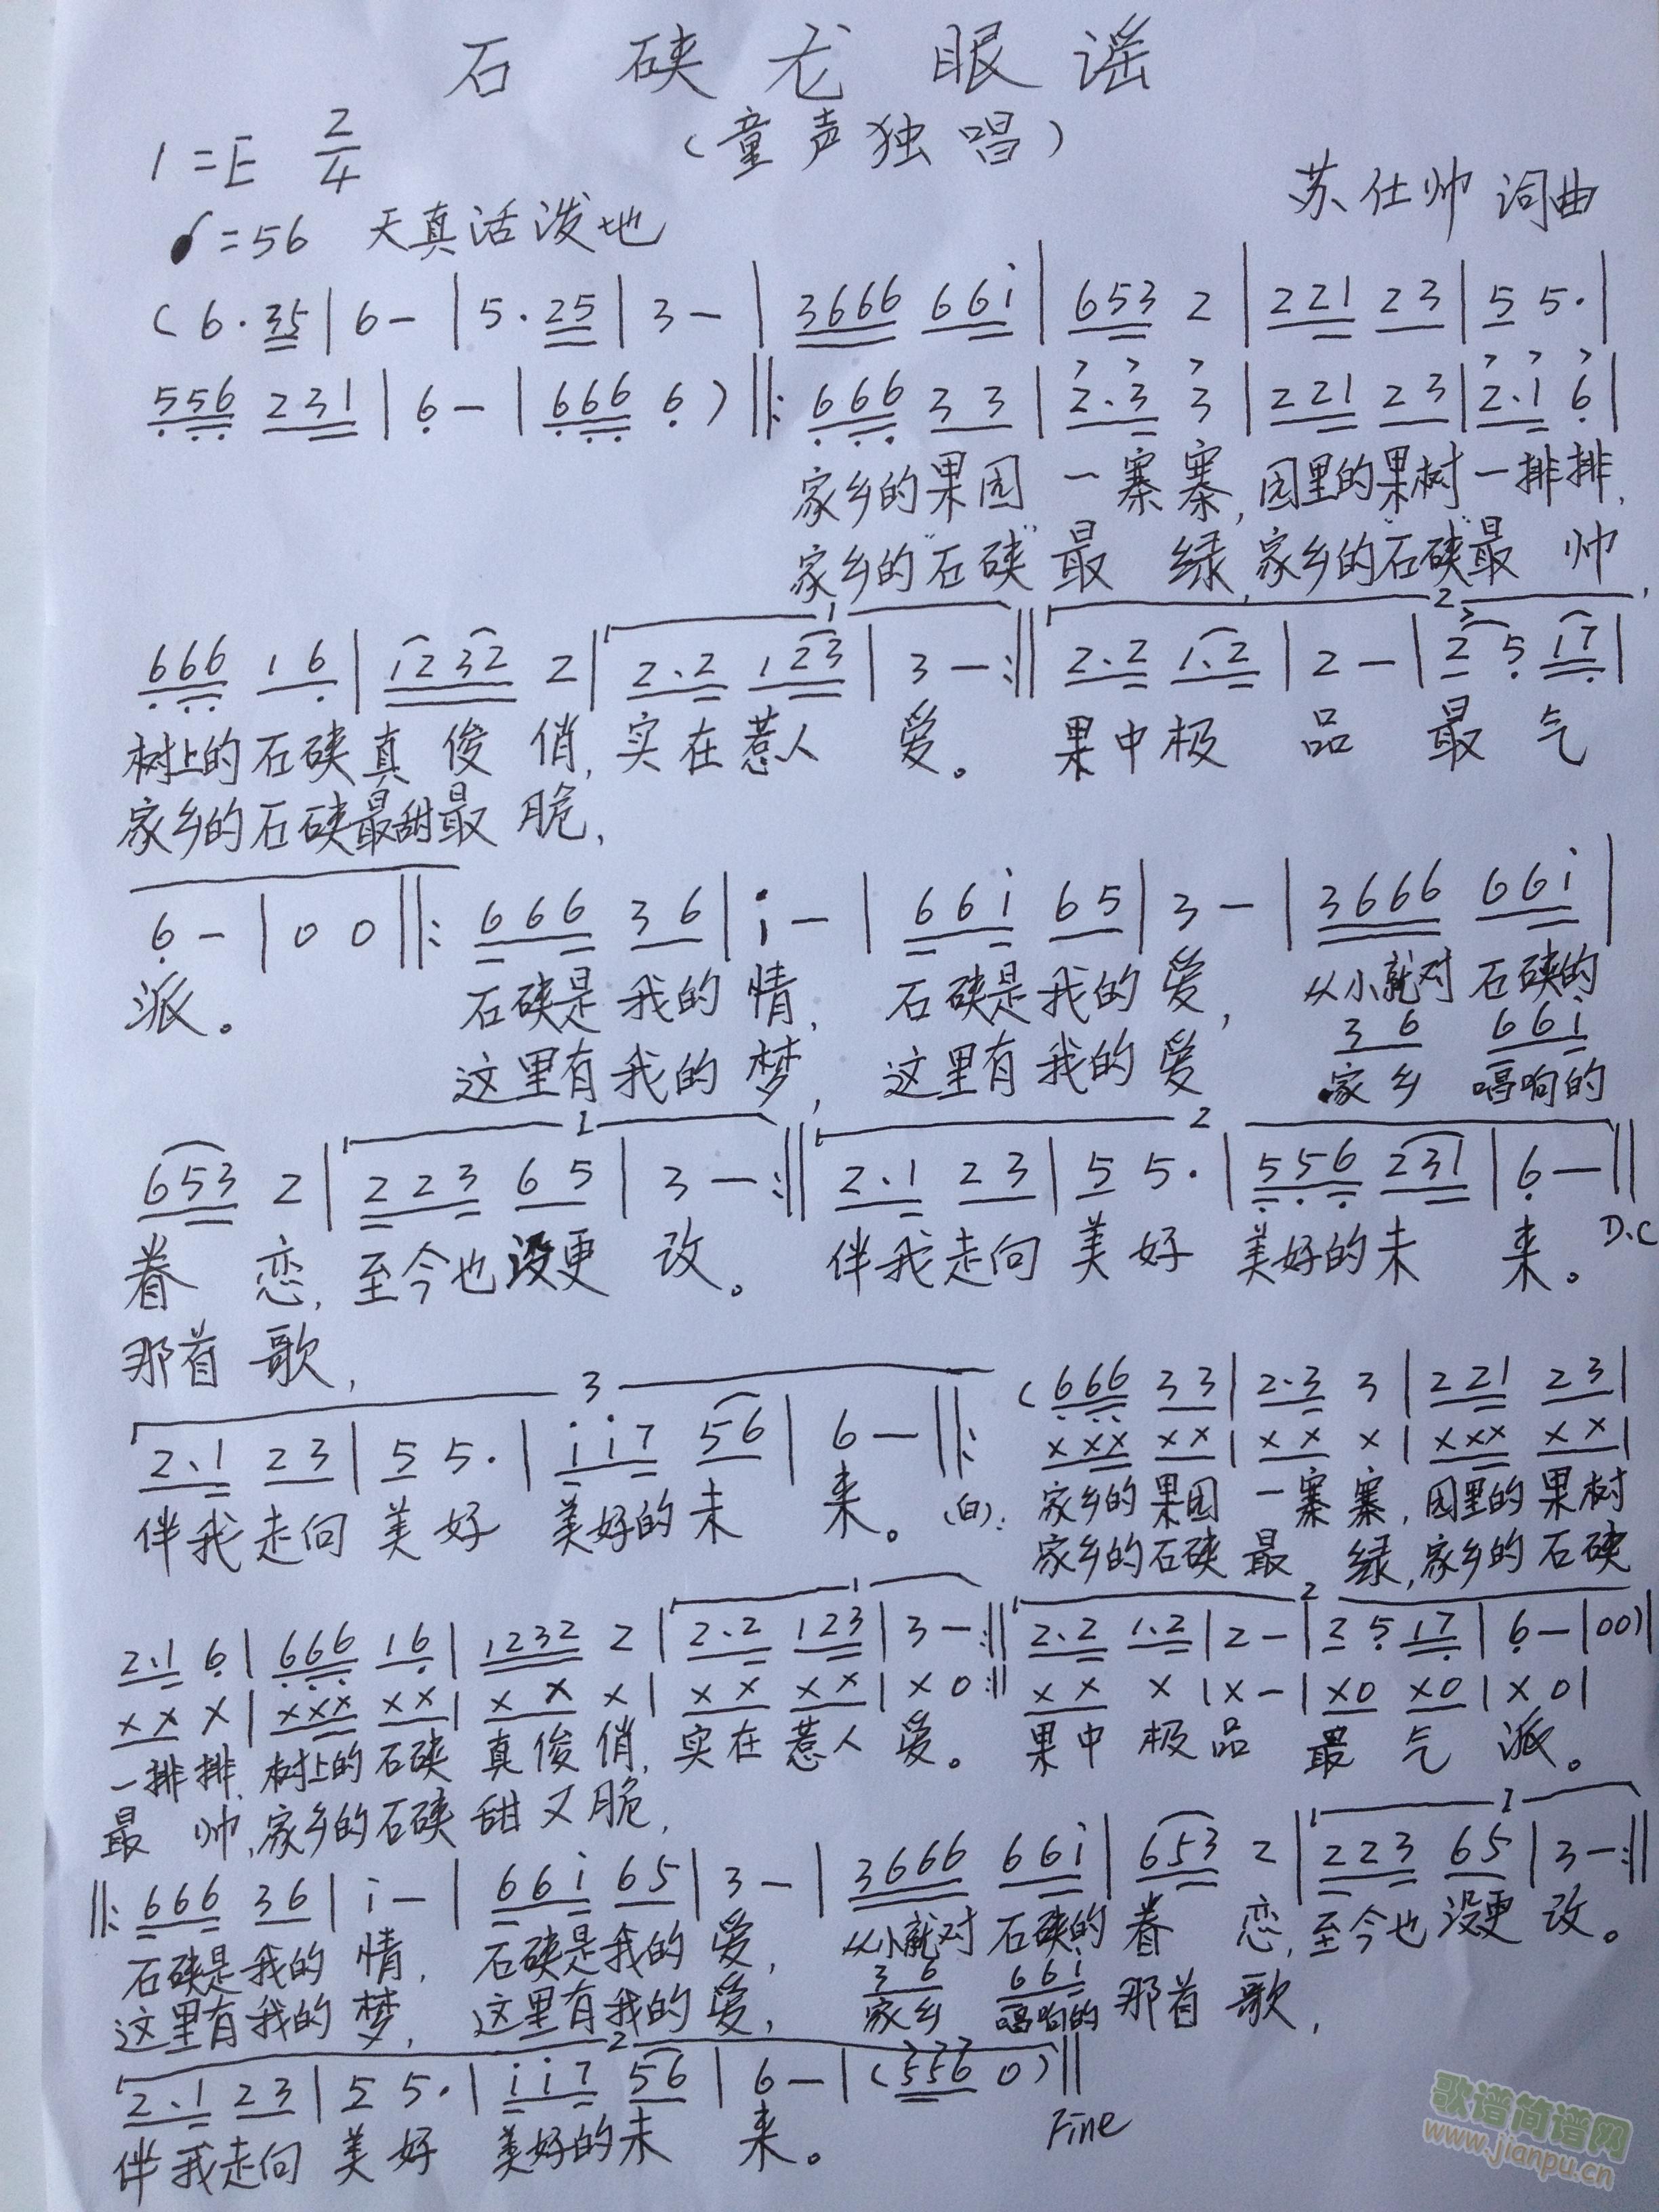 石硖龙眼谣
1=E 2/4 (童声独唱)
苏仕帅 词曲
♩=56 天真活泼地
(6·35|6-|5·25|3-|3666 66i|653 2|221 23|5 5·|
556 231|6-|666 6)‖:666 33|2·3 3|221 23|2·1 6|
家乡的果园一寨寨,园里的果树一排排,
家乡的"石硖"最绿,家乡的"石硖"最帅,
666 16|1232 2|2·2 123|3-:‖2·2 1·2|2-|25 17|
树上的石硖真俊俏,实在惹人爱。果中极品最气
家乡的石硖最甜最脆,
6-|00‖:666 36|i-|66i 65|3-|3666 66i|
派。石硖是我的情,石硖是我的爱,从小就对石硖的
36 66i
这里有我的梦,这里有我的爱 家乡唱响的
653 2|223 65|3-:‖2·1 23|5 5·|556 231|6-‖
眷恋,至今也没更改。伴我走向美好美好的未来。D.C
那首歌,
3
(666 33|2·3 3|221 23|
2·1 23|5 5·|ii7 56|6-‖: xxx xx|xx x|xxx xx|
伴我走向美好美好的未来。(白):家乡的果园一寨寨,园里的果树
家乡的石硖最绿,家乡的石硖
2·1 6|666 16|1232 2|2·2 123|3-:‖2·2 1·2|2-|25 17|6-|00)|
xx x|xxx xx|xx x|xx xx|x0:‖xx x|x-|x0 x0|x0|
一排排,树上的石硖真俊俏,实在惹人爱。果中极品最气派。
最帅,家乡的石硖甜又脆,
‖:666 36|i-|66i 65|3-|3666 66i|653 2|223 65|3-:‖
石硖是我的情,石硖是我的爱,从小就对石硖的眷恋,至今也没更改。
36 66i
这里有我的梦,这里有我的爱,家乡唱响的那首歌,
2·1 23|5 5·|ii7 56|6-|(556 0)‖
伴我走向美好美好的未来。 Fine
歌谱简谱网
www.jianpu.cn